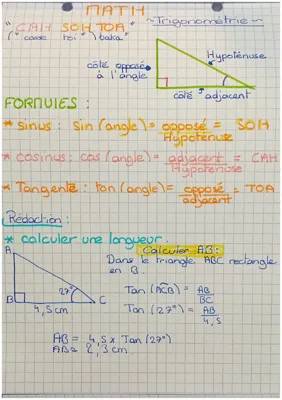 MATH
"CAH SOH TOA"
~Trigonométrie~
("casse toi" "baka")
Hypoténuse
côté opposé
à l'angle
côté adjacent
FORMULES :
* sinus : sin (angle) = opposé / Hypoténuse = SOH
* cosinus : cos (angle) = adjacent / Hypoténuse = CAH
* Tangente : tan (angle) = opposé / adjacent = TOA
Rédaction :
* calculer une longueur :
Calculer AB :
Dans le triangle ABC rectangle
en B :
A
27°
B
C
4,5cm
Tan (ACB) = AB / BC
Tan (27°) = AB / 4,5
AB = 4,5 x Tan (27°)
AB ≈ 2,3cm